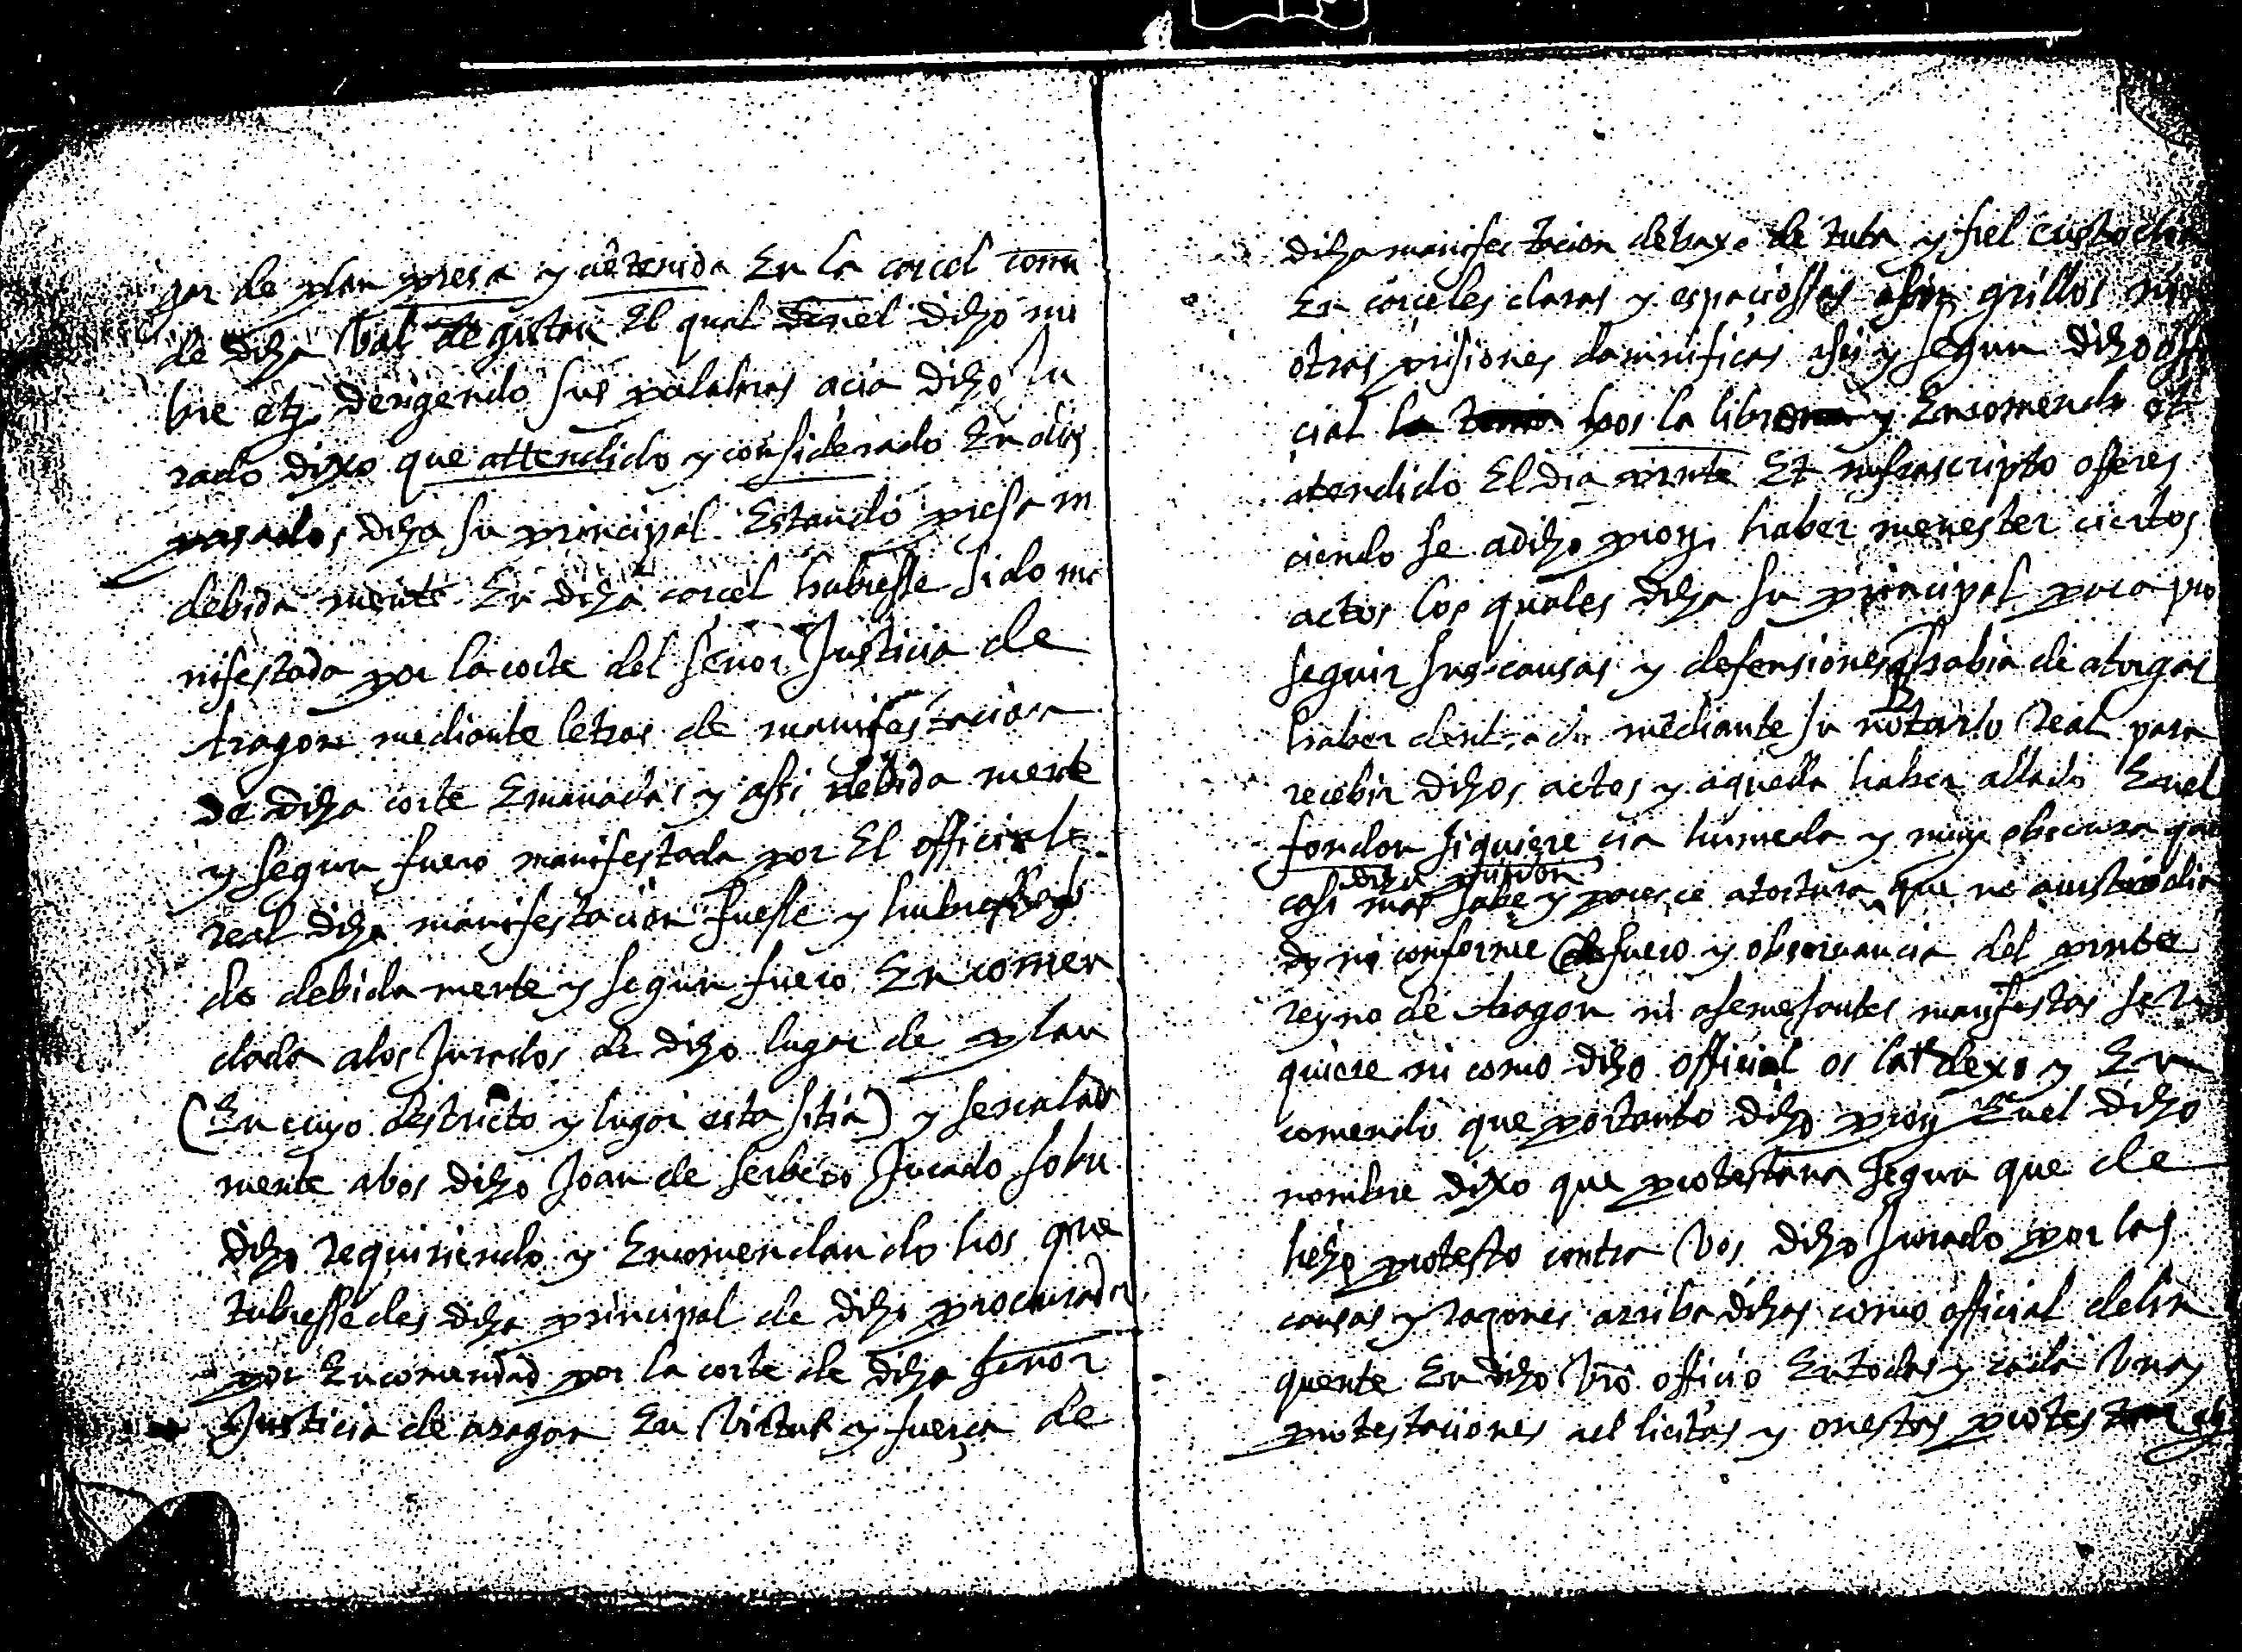 gar de plan presa y detenida En la carcel comu
de dicha Val de gistau El qual En el dicho nu
bre etz. derigendo sus palabras acia dicho Ju
rado dixo que attendido y considerado En dias
pasados dicha su principal Estando presa in
debida mente En dicha carcel hubiesse sido ma
nifestada por la corte del señor Justicia de
Aragon mediante letras de manifestacion
De dicha corte Emanadas y assi debida mente
y segun fuero manifestada por El official
real dicha manifestacion fuesse y hubiesse
do debida mente y segun fuero En comen
dada a los Jurados de dicho lugar de plan
(En cuyo destricto y lugar esta sitia) y senalada
mente a bos dicho Joan de serbeto Jurado sobre
dicho requiriendo y Encomendando hos que
tubiessedes dicha principal de dicho procurador
por Encomendad por la corte de dicho señor
Justicia de aragon En Virtut y fuerça de
dicha manifestacion debaxo de tuta y fiel custodia
En carceles claras y espaciossas assin grillos ni
otras prisiones daminificas assi y segun dicho offi
cial hos la libro y Encomendo et
atendido El dia pnte Et infrascripto ofres
ciendo se a dicho proy. haber menester ciertos
actos los quales dicha su principal para pro
seguir sus causas y defensiones habia de atorgar
haber mediante su notario Real para
recebir dichos actos y aquella haber allado En el
fondon siquiere cia humeda y muy obscura que
dicha prision
casi mas sabe y parece a tortura que no a custodia
ni conforme fuero y observancia del pnte
reyno de Aragon ni a semejantes manifestos se re
quiere ni como dicho official os la dexo y En
comendo que por tanto dicho proy En el dicho
nombre dixo que protestaua segun que de
hecho protesto contra Vos dicho Jurado por las
causas y razones arriba dichas como official delin
quente En dicho Vro officio En todas y cada Unas
protestaciones ad licitas y onestas protestar